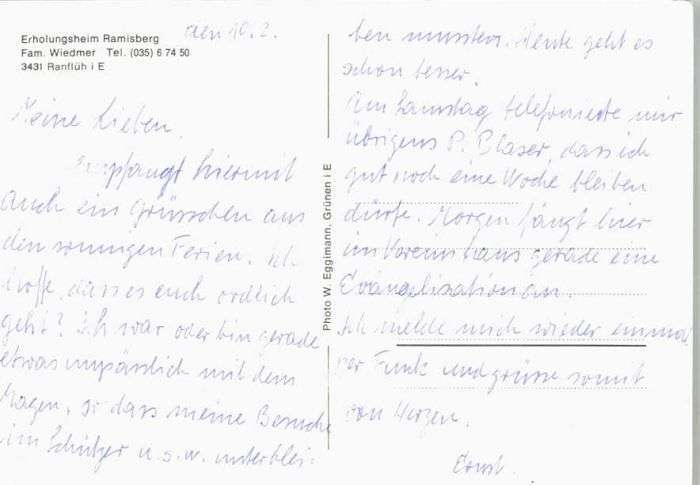 Erholungsheim Ramisberg
Fam. Wiedmer Tel. (035) 6 74 50
3431 Ranflüh i E
den 10. 2.
Meine Lieben.
Empfangt hiermit
auch ein Grüsschen aus
den sonnigen Ferien. Ich
hoffe, dass es euch ordlich
geht? Ich war oder bin gerade
etwas unpässlich mit dem
Magen, so dass meine Besuche
im Schützer u.s.w. unterblei-
ben mussten. Heute geht es
schon besser.
Am Samstag telefonierte mir
übrigens P. Blaser, dass ich
gut noch eine Woche bleiben
dürfe. Morgen fängt hier
im Vereinshaus gerade eine
Evangelisation an.
Ich melde mich wieder einmal
per Funk und grüsse somit
von Herzen.
Ernst.
Photo W. Eggimann, Grünen i E